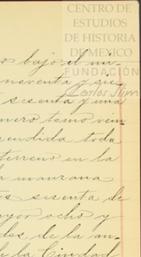 CENTRO DE
ESTUDIOS
DE HISTORIA
DE MEXICO
FUNDACIÓN
Carlos Slim
bajo el nú-
noventa y
sesenta y una
mero tomo ven
endida toda
terreno en la
manzana
sesenta de
yor ocho y
des de la an-
de la Ciudad